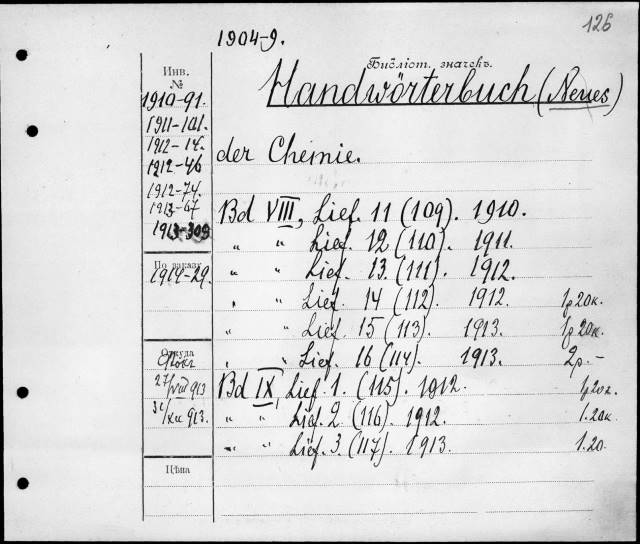 126
1904-9.
Библіот. значекъ.
Handwörterbuch (Neues)
der Chemie.
Инв.
№
1910-91.
1911-101.
1912-14.
1912-46
1912-74.
1913-67
1913-309
По заказу
1914-29.
Откуда
27/VIII 913
/XII 913.
Цѣна
Bd VIII, Lief. 11 (109). 1910.
„ „ Lief. 12 (110). 1911.
„ „ Lief. 13. (111). 1912.
„ „ Lief. 14 (112). 1912. 1р 20к.
„ „ Lief. 15 (113). 1913. 1р 20к.
„ „ Lief. 16 (114). 1913. 2р. –
Bd IX, Lief. 1. (115). 1912. 1р 20к.
„ „ Lief. 2 (116). 1912. 1.20к
„ „ Lief. 3. (117). 1913. 1.20.